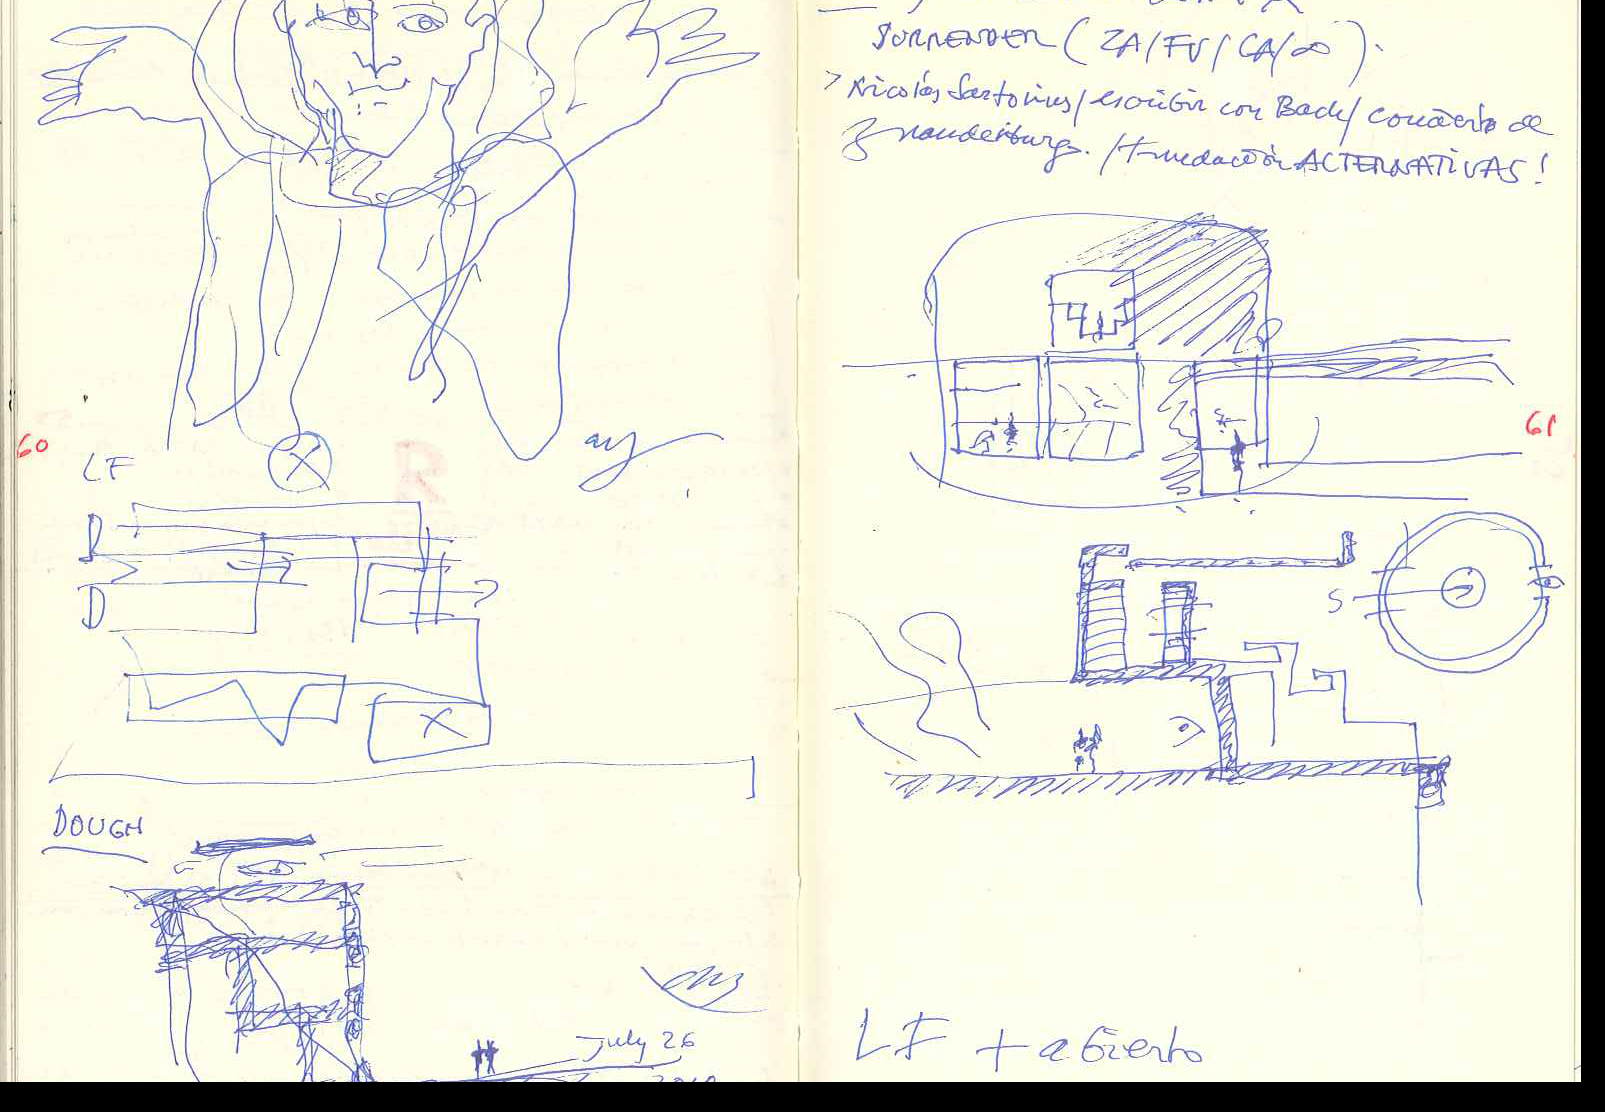 60
LF
R
D
DOUGH
July 26
SURRENDER (ZA/FU/CA/∞).
> Nicolás Sartorius/escribir con Bach/concierto de
Brandenburgo. /+ redacción ALTERNATIVAS!
61
S
LF + abierto